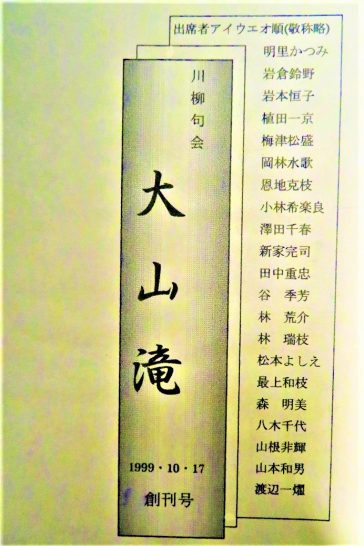 出席者アイウエオ順(敬称略)
明里かつみ
岩倉鈴野
岩本恒子
植田一京
梅津松盛
岡林水歌
恩地克枝
小林希楽良
澤田千春
新家完司
田中重忠
谷 季芳
林 荒介
林 瑞枝
松本よしえ
最上和枝
森 明美
八木千代
山根非輝
山本和男
渡辺一燿
川柳句会
大山滝
1999・10・17
創刊号